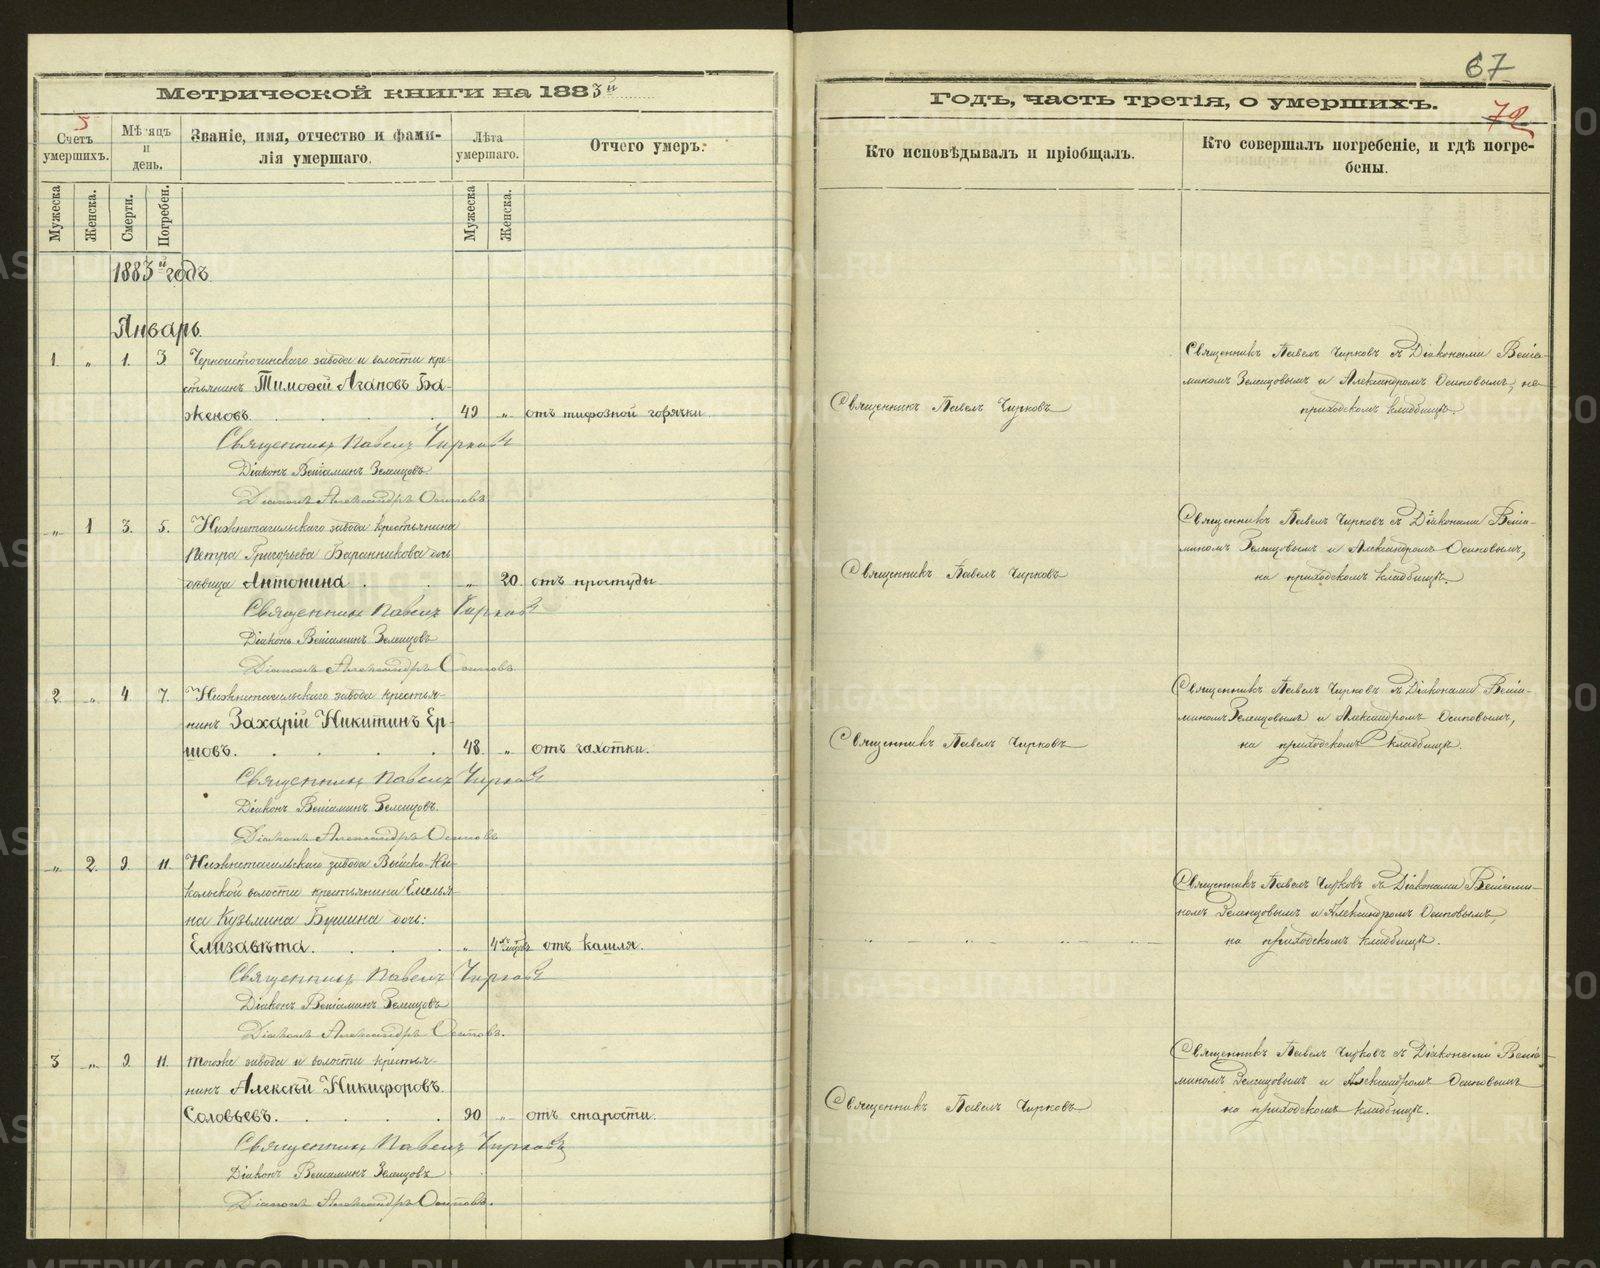 67
Метрической книги на 1883й
Годъ, часть третія, о умершихъ.
5
72
Счетъ умершихъ.
Мѣсяцъ и день.
Званіе, имя, отчество и фами-
лія умершаго.
Лѣта умершаго.
Отчего умеръ.
Кто исповѣдывалъ и пріобщалъ.
Кто совершалъ погребеніе, и гдѣ погре-
бены.
Мужеска
Женска.
Смерти.
Погребен.
Мужеска
Женска.
1883й годъ.
Январь.
1. " 1. 3. Черноисточинскаго завода и волости кре-
стьянинъ Тимоѳей Агаповъ Ба-
женовъ. 49 " отъ тифозной горячки.
Священникъ Павелъ Чирковъ
Священникъ Павелъ Чирковъ съ Діаконами Веніа-
миномъ Зеленцовымъ и Александромъ Осиповымъ, на
приходскомъ кладбищѣ.
Священникъ Павелъ Чирковъ
Діаконъ Веніаминъ Зеленцовъ.
Діаконъ Александръ Осиповъ
" 1 3. 5. Нижнетагильскаго завода крестьянина
Петра Григорьева Баранникова дочь
дѣвица Антонина " 20. отъ простуды
Священникъ Павелъ Чирковъ
Священникъ Павелъ Чирковъ съ Діаконами Веніа-
миномъ Зеленцовымъ и Александромъ Осиповымъ,
на приходскомъ кладбищѣ.
Священникъ Павелъ Чирковъ
Діаконъ Веніаминъ Зеленцовъ
Діаконъ Александръ Осиповъ.
2 " 4. 7. Нижнетагильскаго завода крестья-
нинъ Захарій Никитинъ Ер-
шовъ. 48. " отъ чахотки.
Священникъ Павелъ Чирковъ
Священникъ Павелъ Чирковъ съ Діаконами Веніа-
миномъ Зеленцовымъ и Александромъ Осиповымъ,
на приходскомъ кладбищѣ.
Священникъ Павелъ Чирковъ
Діаконъ Веніаминъ Зеленцовъ.
Діаконъ Александръ Осиповъ
" 2. 9. 11. Нижнетагильскаго завода Выйско-Ни-
кольской волости крестьянина Емелья-
на Кузьмина Бушина дочь:
Елизавѣта. " 4 отъ кашля.
Священникъ Павелъ Чирковъ съ Діаконами Веніами-
номъ Зеленцовымъ и Александромъ Осиповымъ,
на приходскомъ кладбищѣ.
Священникъ Павелъ Чирковъ
Діаконъ Веніаминъ Зеленцовъ
Діаконъ Александръ Осиповъ.
3 " 9. 11. тогоже завода и волости крестья-
нинъ Алексѣй Никифоровъ
Соловьевъ. 90 " отъ старости.
Священникъ Павелъ Чирковъ
Священникъ Павелъ Чирковъ съ Діаконами Веніа-
миномъ Зеленцовымъ и Александромъ Осиповымъ
на приходскомъ кладбищѣ.
Священникъ Павелъ Чирковъ
Діаконъ Веніаминъ Зеленцовъ
Діаконъ Александръ Осиповъ.
METRIKI.GASO-URAL.RU